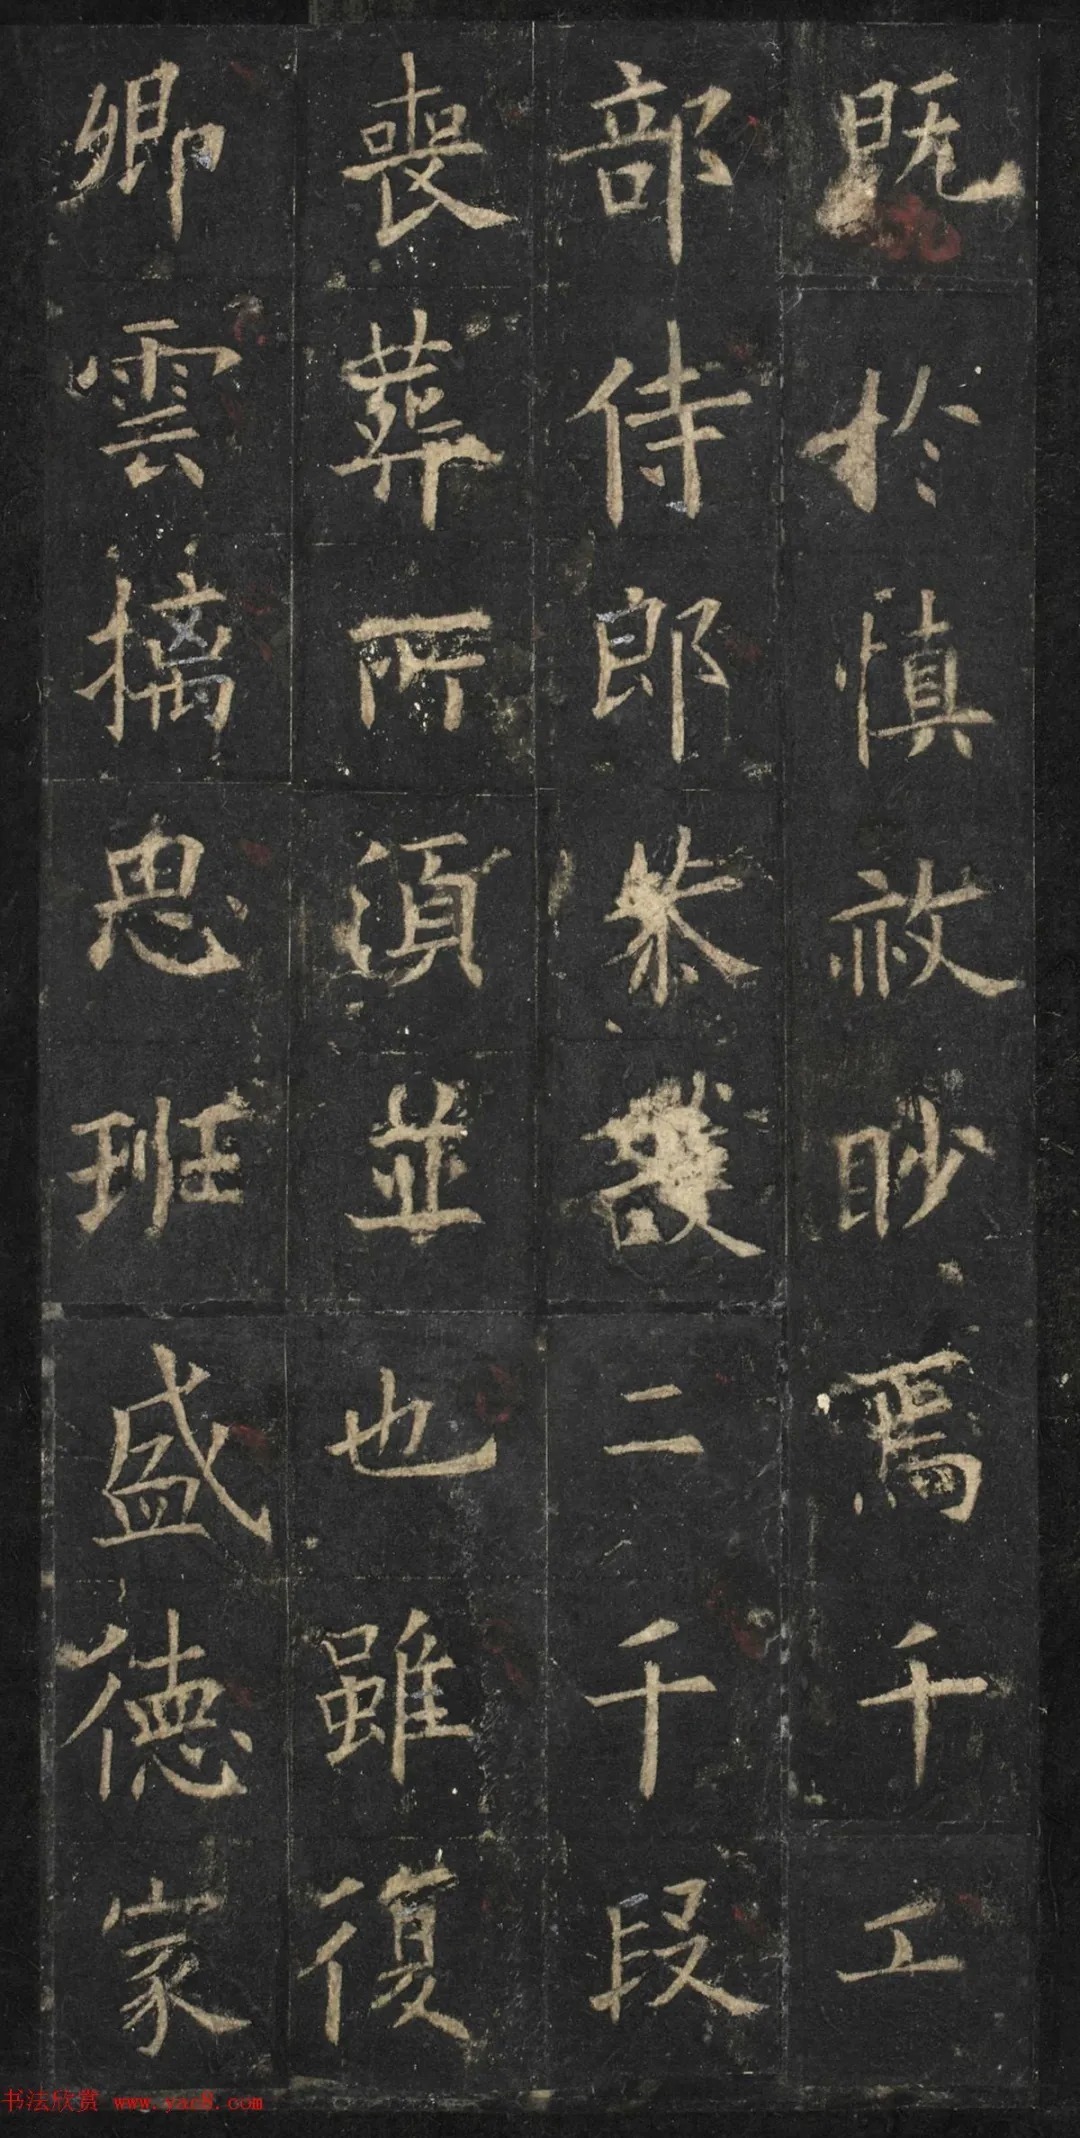 既於慎赦眇焉千工
部侍郎恭護二千段
喪葬所須並也雖復
卿雲摛思班盛德家
书法欣赏 www.yac8.com